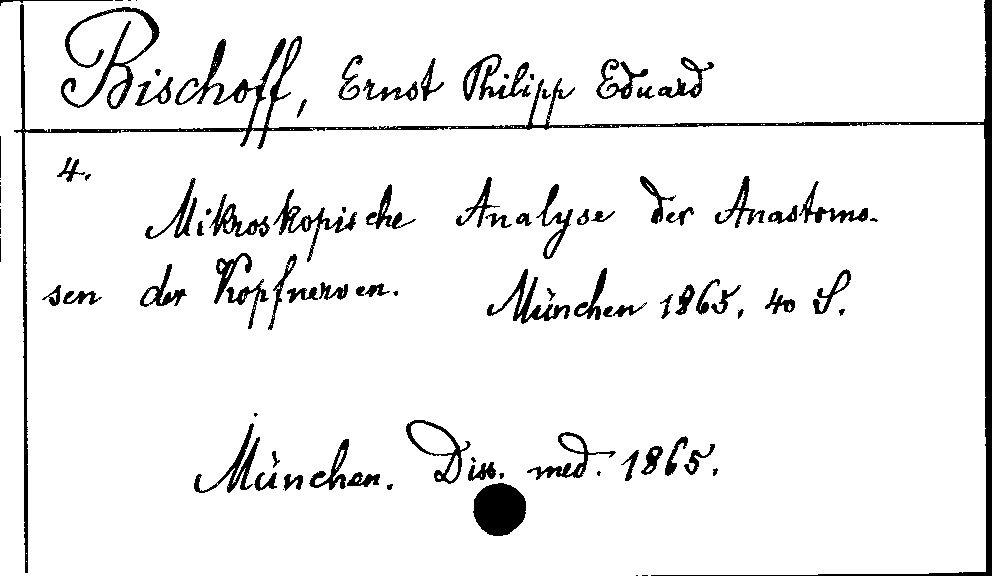 Bischoff, Ernst Philipp Eduard
4.
Mikroskopische Analyse der Anastomo-
sen der Kopfnerven. München 1865. 40 S.
München. Diss. med. 1865.